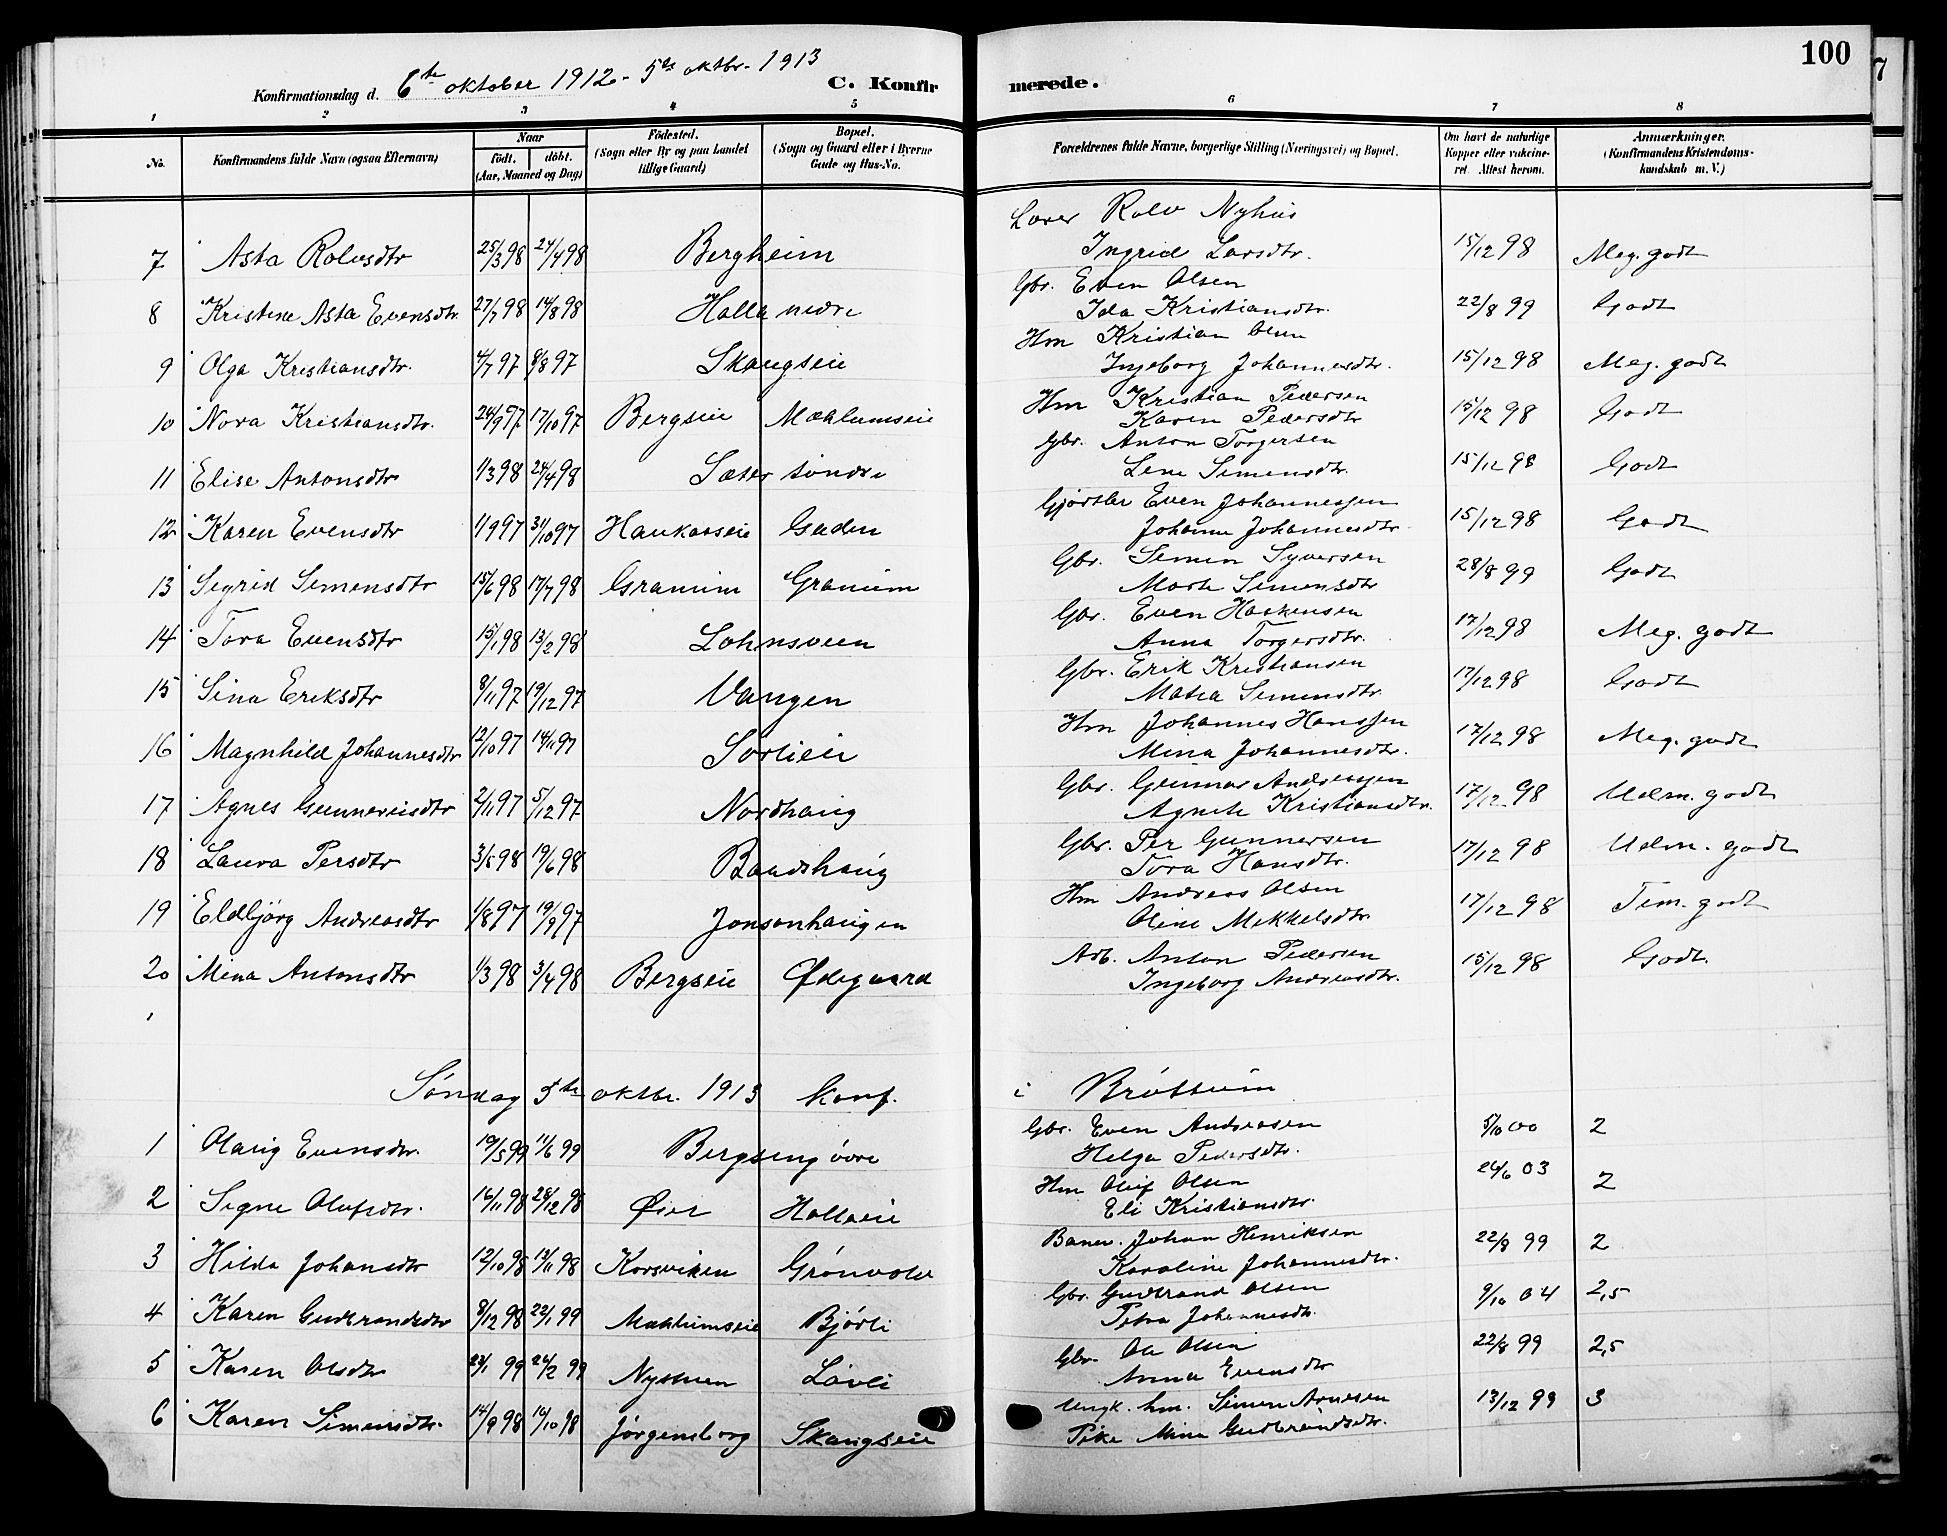 100
7
Konfirmationsdag d. 6te oktober 1912 - 5te oktbr. 1913 C. Konfirmerede.
1 2 3 4 5 6 7 8
No. Konfirmandens fulde Navn (ogsaa Efternavn) Naar født. døbt. (Aar, Maaned og Dag) Fødested. (Sogn eller By og paa Landet tillige Gaard) Bopæl. (Sogn og Gaard eller i Byerne Gade og Hus-No. Forældrenes fulde Navne, borgerlige Stilling (Næringsvei) og Bopæl. Om havt de naturlige Kopper eller vakcineret. Attest herom. Anmærkninger. (Konfirmandens Kristendomskundskab m. V.)
Lærer Rolv Nyhus
7 Asta Rolvsdtr 25/3 98 24/4 98 Bergheim Ingrid Larsdtr. 15/12 98 Meg. godt
Gbr. Even Olsen
8 Kristine Asta Evensdtr. 27/7 98 14/8 98 Holla nedre Ida Kristiansdtr. 22/8 99 Godt
Hm Kristian Olsen
9 Olga Kristiansdtr. 4/7 97 8/8 97 Skaugseie Ingeborg Johannesdtr. 15/12 98 Meg. godt
Hm Kristian Pedersen
10 Nora Kristiansdtr. 24/9 97 17/10 97 Bergseie Mæhlumseie Karen Pedersdtr 15/12 98 Godt
Gbr. Anton Torgersen
11 Elise Antonsdtr 1/3 98 24/4 98 Sæter søndre Lene Simensdtr. 15/12 98 Godt
Gjørtler Even Johannessen
12 Karen Evensdtr 1/9 97 31/10 97 Haukaaseie Gaden Johanne Johannesdtr. 15/12 98 Godt
Gbr. Simen Syversen
13 Sigrid Simensdtr 15/6 98 17/7 98 Granum Granum Marte Simensdtr 28/8 99 Godt
Gbr. Even Haakensen
14 Tora Evensdtr 15/1 98 13/2 98 Lohnsveen Anna Torgersdtr. 17/12 98 Meg. godt
Gbr. Erik Kristiansen
15 Sina Eriksdtr 8/11 97 19/12 97 Vangen Matea Simensdtr. 17/12 98 Godt
Hm Johannes Hanssen
16 Magnhild Johannesdtr 12/10 97 14/11 97 Sørlieie Mina Johannesdtr. 17/12 98 Meg. godt
Gbr. Gunnar Andreassen
17 Agnes Gunneriusdtr 2/11 97 5/12 97 Nordhaug Agnete Kristiansdtr. 17/12 98 Udm. godt
Gbr. Per Gunnersen
18 Laura Persdtr 3/5 98 19/6 98 Baadshaug Tora Hansdtr. 17/12 98 Udm. godt
Hm Andreas Olsen
19 Eldbjørg Andreasdtr 1/8 97 19/9 97 Jonsonhaugen Oline Mikkelsdtr. 17/12 98 Tem. godt
Arb. Anton Pedersen
20 Mina Antonsdtr 1/3 98 3/4 98 Bergseie Ødegaard Ingeborg Andreasdtr. 15/12 98 Godt.
Søndag 5te oktbr. 1913 konf. i Brøttum
Gbr. Even Andreasen
1 Olaug Evensdtr. 19/5 99 11/6 99 Bergseng øvre Helga Pedersdtr. 5/10 00 2
Hm Oluf Olsen
2 Signe Olufsdtr. 16/11 98 28/12 98 Øier Hollaeie Eli Kristiansdtr. 24/6 03 2
Baner. Johan Henriksen
3 Hilda Johansdtr 12/10 98 13/11 98 Korsviken Grønvold Karoline Johannesdtr. 22/8 99 2
Gbr. Gudbrand Olsen
4 Karen Gudbrandsdtr 8/12 98 22/1 99 Mæhlumseie Bjørli Petra Johannesdtr. 9/10 04 2,5
Gbr. Ole Olsen
5 Karen Olsdtr 23/1 99 26/2 99 Nystuen Løvli Anna Evensdtr 22/8 99 2,5
Ungk. hm. Simen Arnesen
6 Karen Simensdtr. 14/9 98 16/10 98 Jørgensborg Skaugseie Pike Mina Gudbrandsdtr. 13/12 99 3